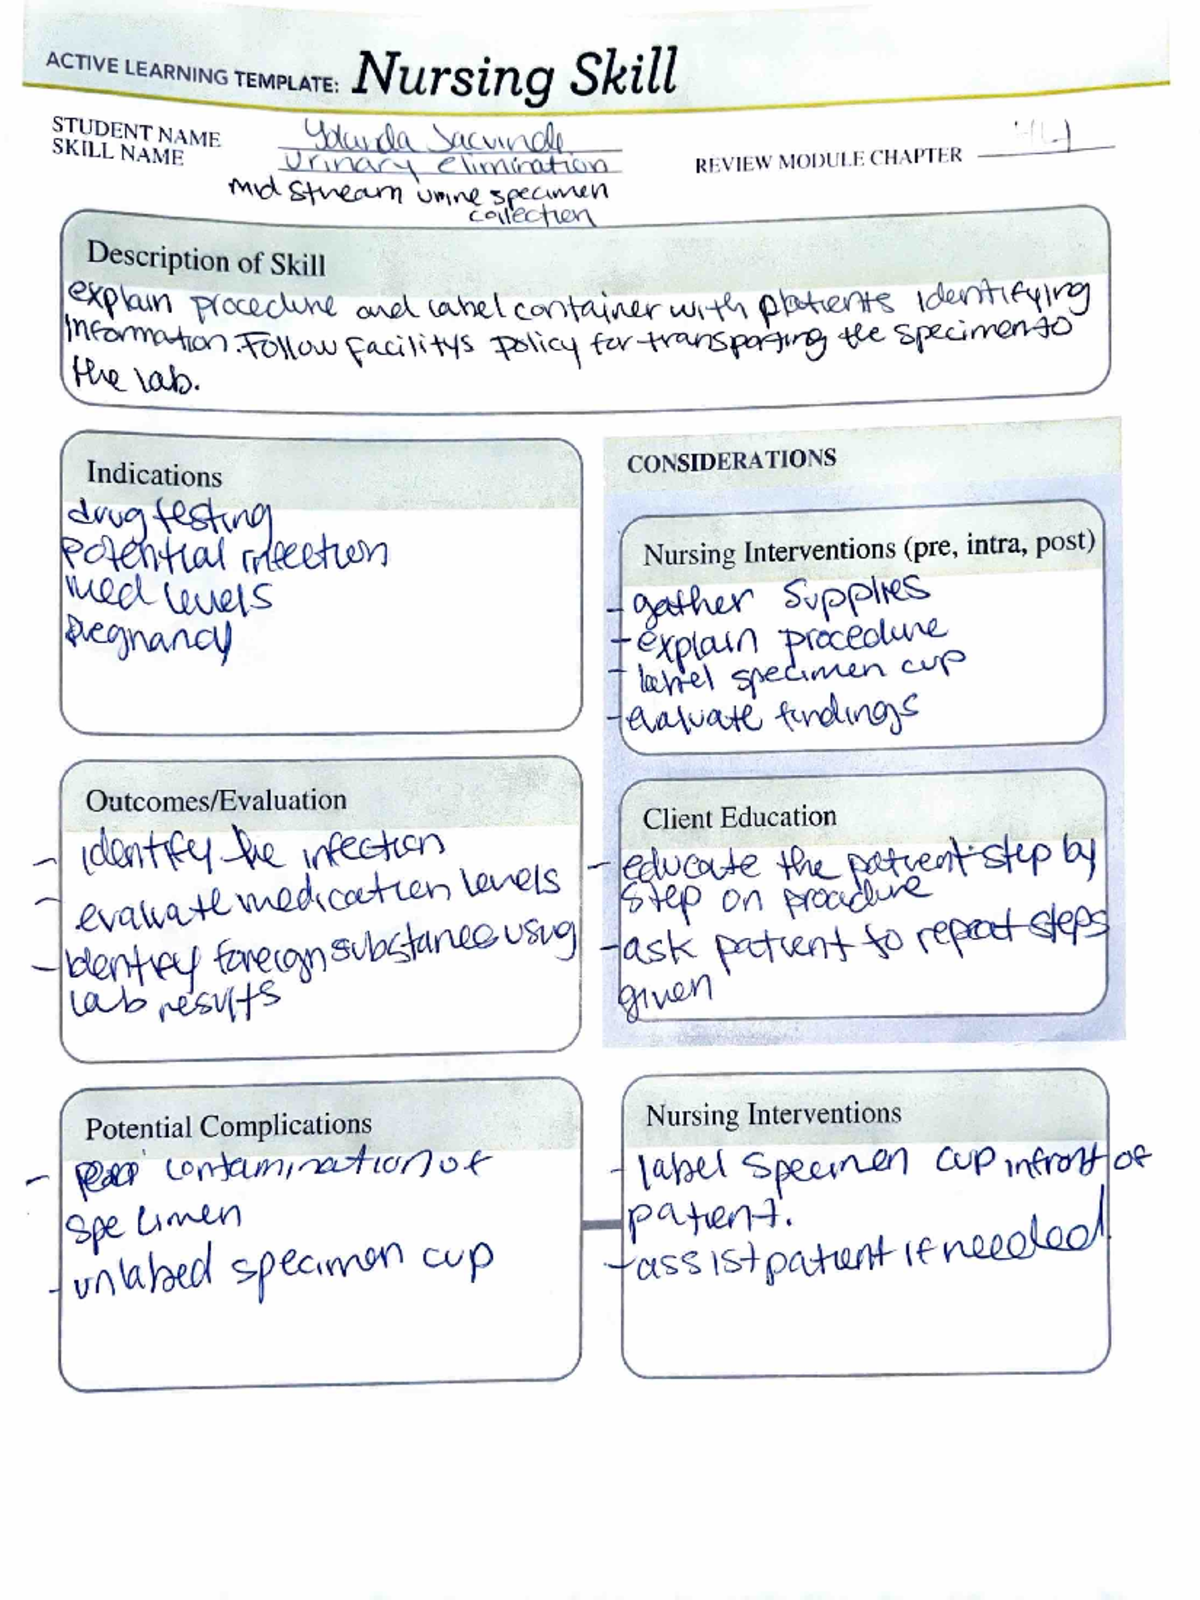 ACTIVE LEARNING TEMPLATE: Nursing Skill
STUDENT NAME
SKILL NAME Urinary elimination
REVIEW MODULE CHAPTER 44
Mid Stream urine specimen
collection
Description of Skill
explain procedure and label container with patients identifying
information. Follow facilitys policy for transporting the specimen to
the lab.
Indications
drug testing
Potential infection
Med levels
Pregnancy
CONSIDERATIONS
Nursing Interventions (pre, intra, post)
- gather Supplies
- explain procedure
- label specimen cup
- evaluate findings
Outcomes/Evaluation
- identify the infection
- evaluate medication levels
- Identify foreign substances using
lab results
Client Education
- educate the patient step by
step on procedure
- ask patient to repeat steps
given
Potential Complications
- contamination of
specimen
- unlabed specimen cup
Nursing Interventions
- label specimen cup infront of
patient.
- assist patient if needed